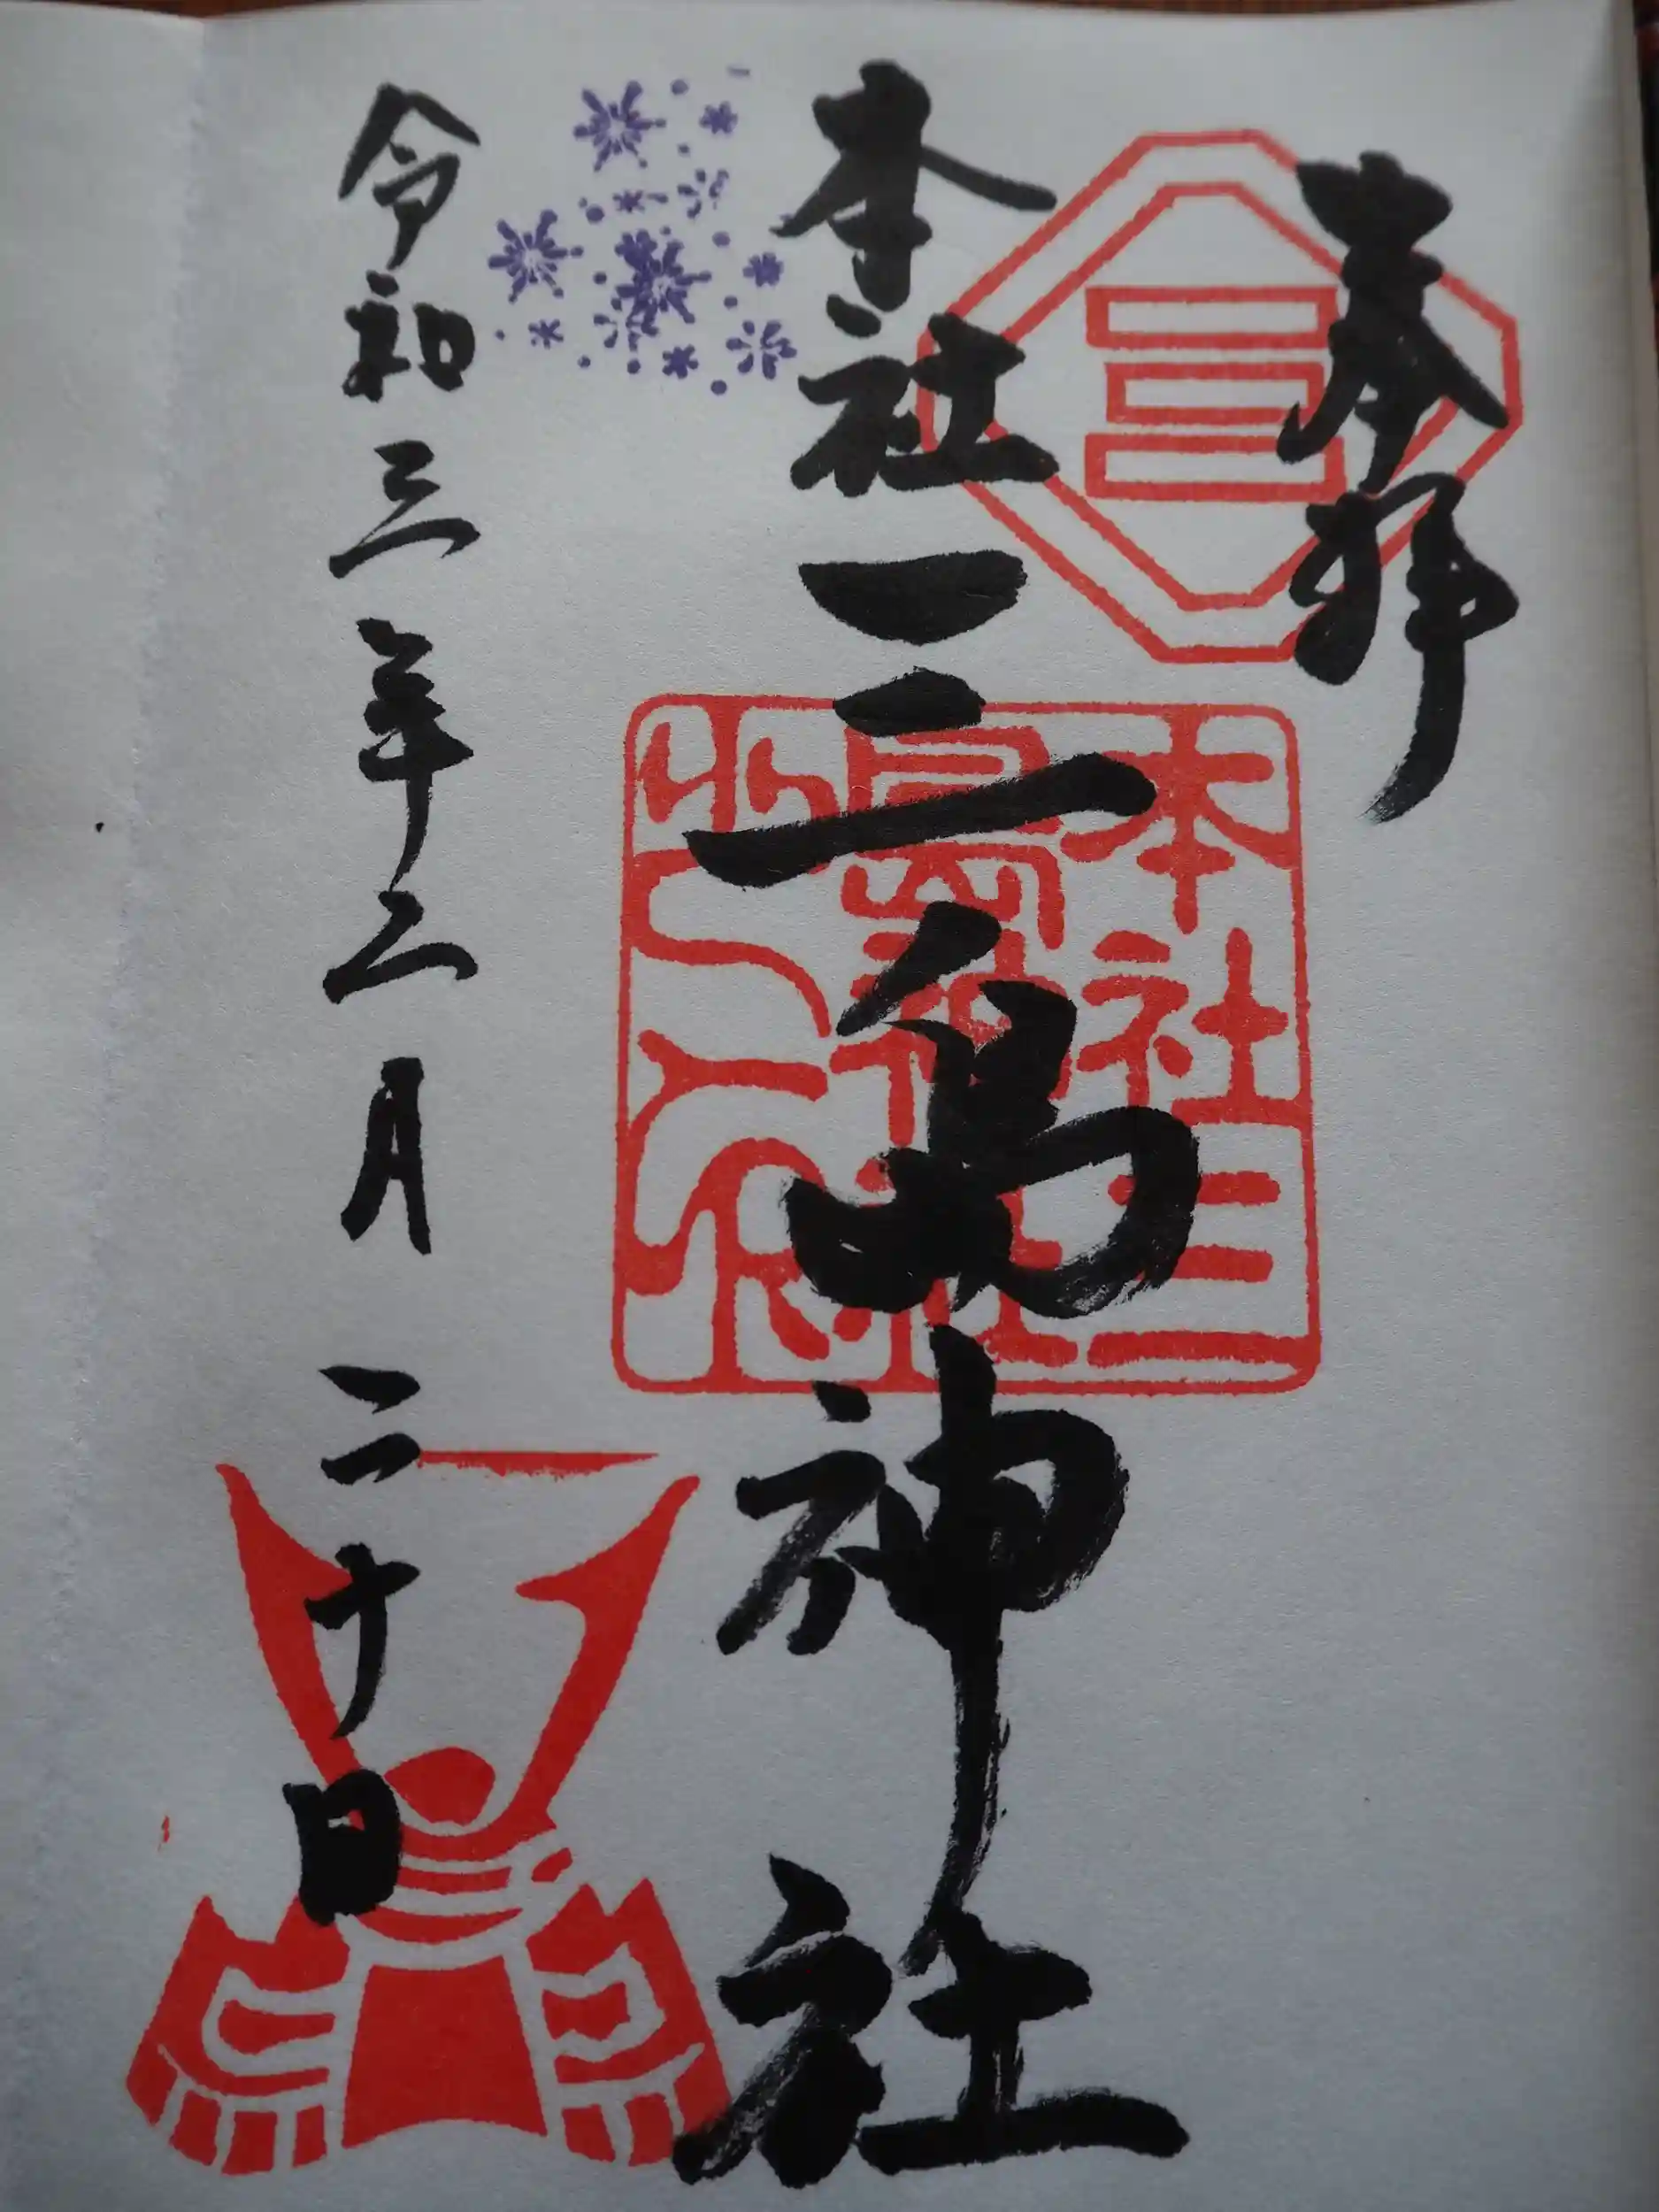 奉拝
本社三島神社
本社三
島神社
之印
令和三年二月二十日